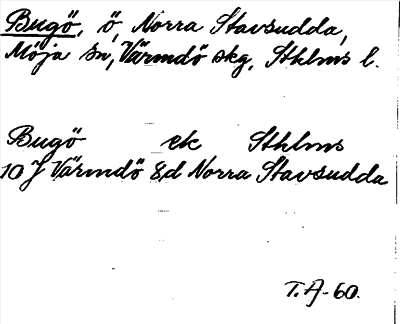 Bugö, ö, Norra Stavsudda,
Möja sn, Värmdö skg, Sthlms l.
Bugö ek Sthlms
10 J Värmdö 8d Norra Stavsudda
T.A-60.